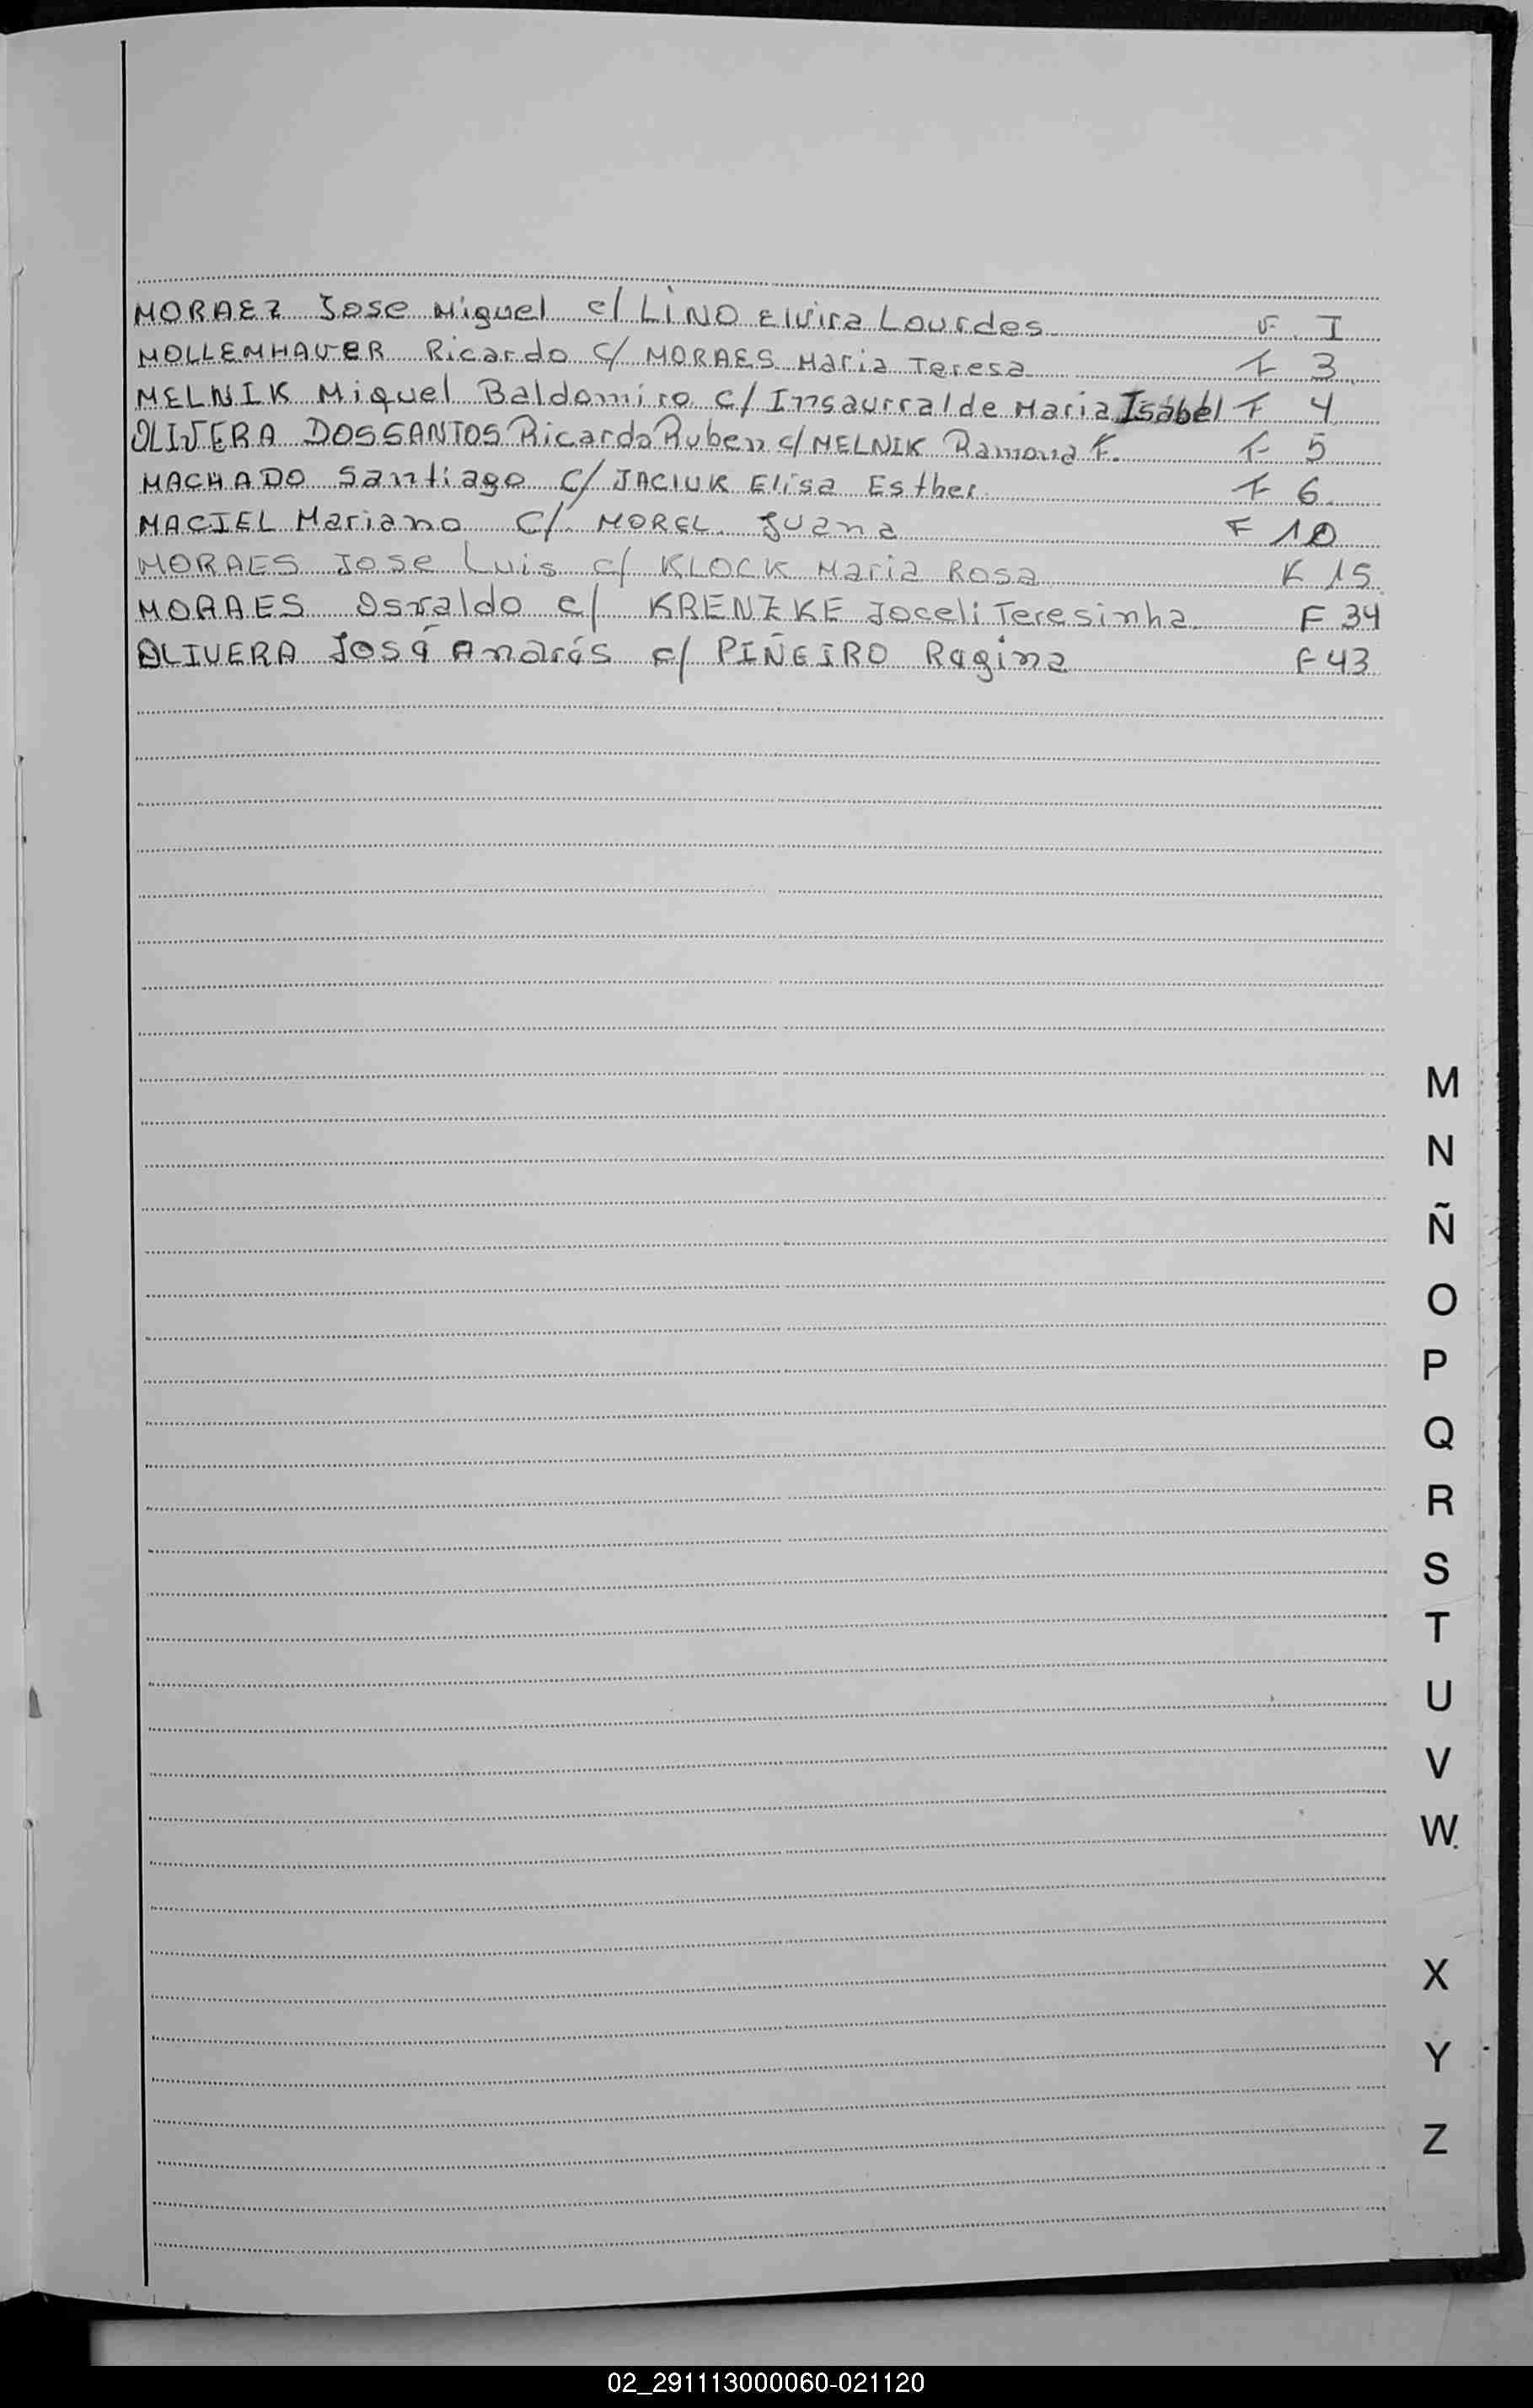 MORAEZ Jose Miguel c/ LiNO Elvira Lourdes F. I
MOLLEMHAUER Ricardo C/ MORAES Maria Teresa F 3
MELNIK Miguel Baldomiro C/ Insaurralde Maria Isabel F 4
OLIVERA DOSSANTOS Ricardo Ruben c/ MELNIK Ramona F. F 5
MACHADO Santiago C/ JACIUK Elisa Esther F 6
MACIEL Mariano C/. MOREL. Juana F 10
MORAES Jose Luis c/ KLOCK Maria Rosa F 15
MORAES Osvaldo c/ KRENZKE Joceli Teresinha F 34
OLIVERA José Andrés c/ PIÑEIRO Regina F 43
M
N
Ñ
O
P
Q
R
S
T
U
V
W.
X
Y
Z
02_291113000060-021120